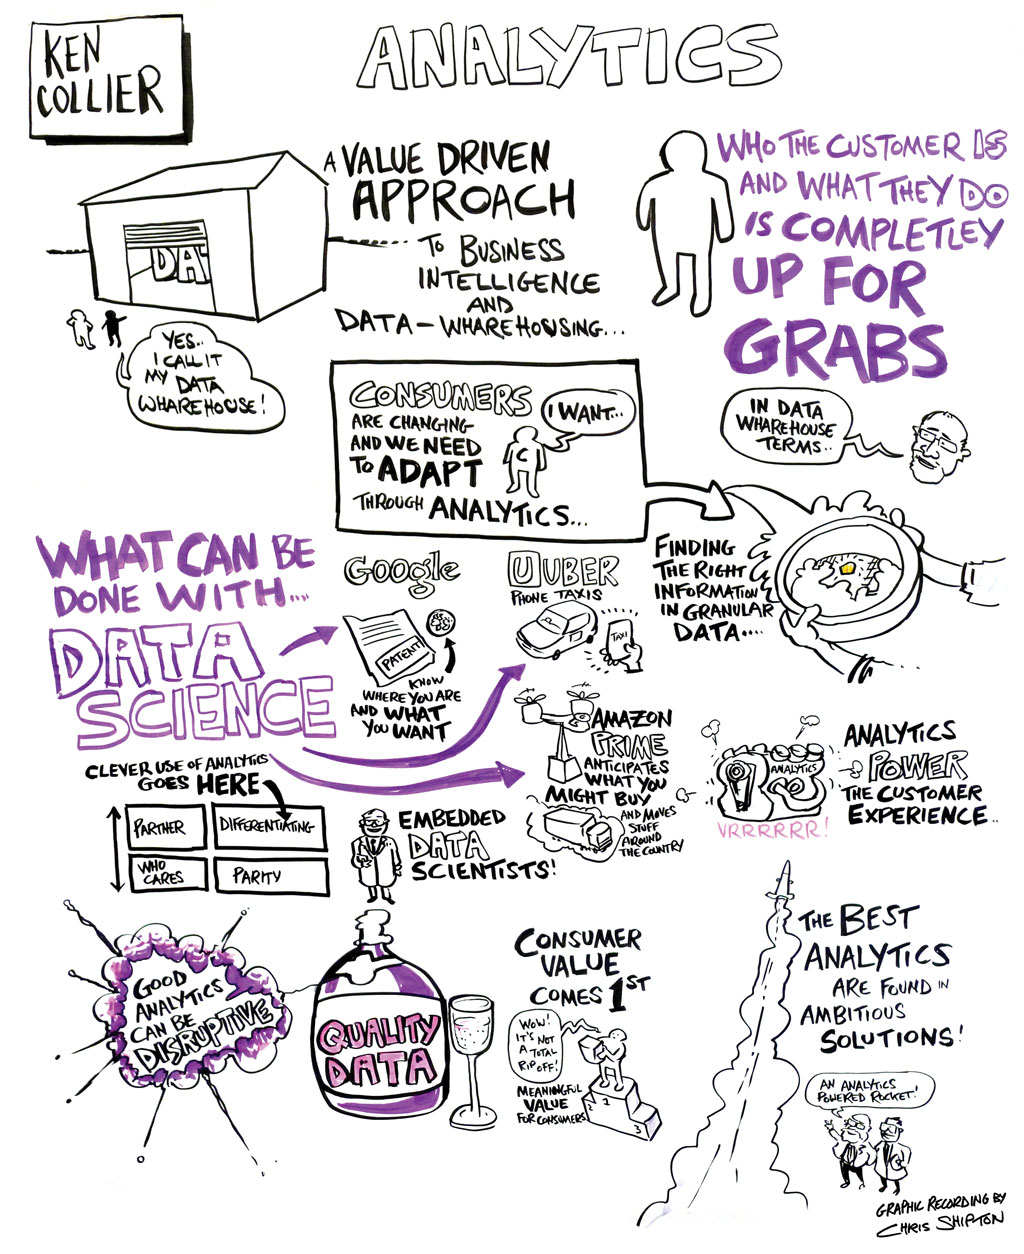 KEN
COLLIER
ANALYTICS
A VALUE DRIVEN
APPROACH
TO BUSINESS
INTELLIGENCE
AND
DATA-WHAREHOUSING...
DA
YES..
I CALL IT
MY DATA
WHAREHOUSE!
WHO THE CUSTOMER IS
AND WHAT THEY DO
IS COMPLETLEY
UP FOR
GRABS
IN DATA
WHAREHOUSE
TERMS..
CONSUMERS
ARE CHANGING
AND WE NEED
TO ADAPT
THROUGH ANALYTICS...
I WANT..
C
FINDING
THE RIGHT
INFORMATION
IN GRANULAR
DATA....
WHAT CAN BE
DONE WITH....
DATA
SCIENCE
Google
PATENT!
KNOW
WHERE YOU ARE
AND WHAT
YOU WANT
U UBER
PHONE TAXIS
TAXI
AMAZON
PRIME
ANTICIPATES
WHAT YOU
MIGHT BUY
AND MOVES
STUFF
AROUND
THE COUNTRY
ANALYTICS
VRRRRRR!
ANALYTICS
POWER
THE CUSTOMER
EXPERIENCE..
CLEVER USE OF ANALYTICS
GOES HERE
PARTNER
DIFFERENTIATING
WHO
CARES
PARITY
EMBEDDED
DATA
SCIENTISTS!
GOOD
ANALYTICS
CAN BE
DISRUPTIVE
QUALITY
DATA
CONSUMER
VALUE
COMES 1ST
WOW!
IT'S NOT
A TOTAL
RIP OFF!
MEANINGFUL
VALUE
FOR CONSUMERS
2
1
3
THE BEST
ANALYTICS
ARE FOUND IN
AMBITIOUS
SOLUTIONS!
AN ANALYTICS
POWERED ROCKET!
GRAPHIC RECORDING BY
CHRIS SHIPTON